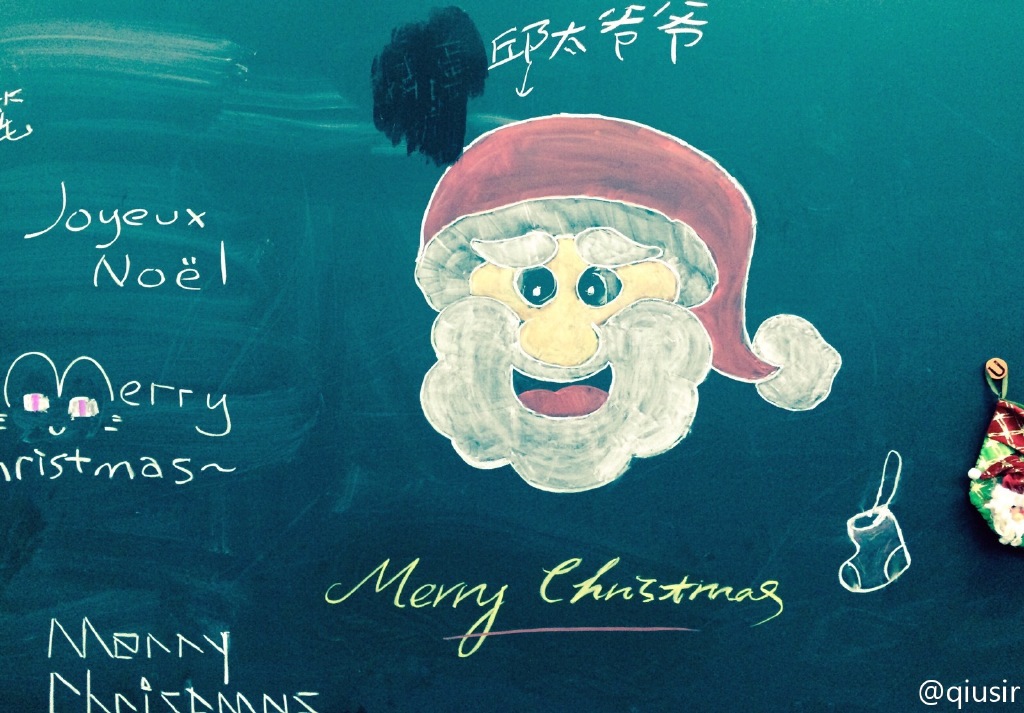 邱太爷爷
Joyeux
Noël
Merry
hristmas~
Merry Christmas
Merry
Christmas
@qiusir